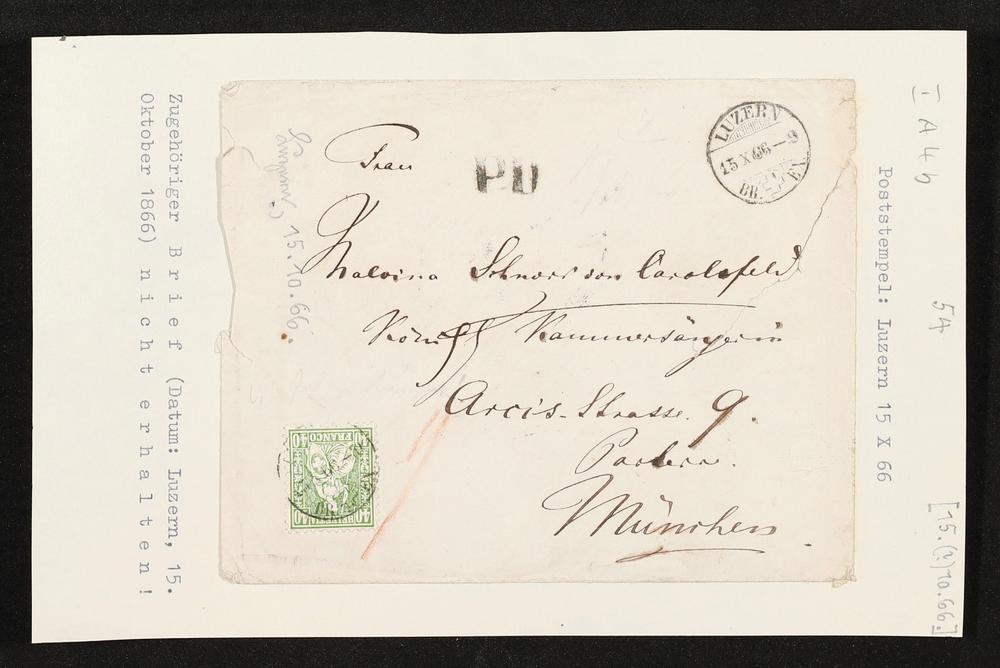 Frau
PD
LUZERN
15 X 66 – 9
Malvina Schnorr von Carolsfeld
Königl Kammersängerin
Arcis-Strasse. 9.
Parterre.
München.
40 FRANCO 40
40 40
15.10.66.
Zugehöriger Brief (Datum: Luzern, 15.
Oktober 1866) nicht erhalten!
I A 4 h
54
[15.(?)10.66.]
Poststempel: Luzern 15 X 66